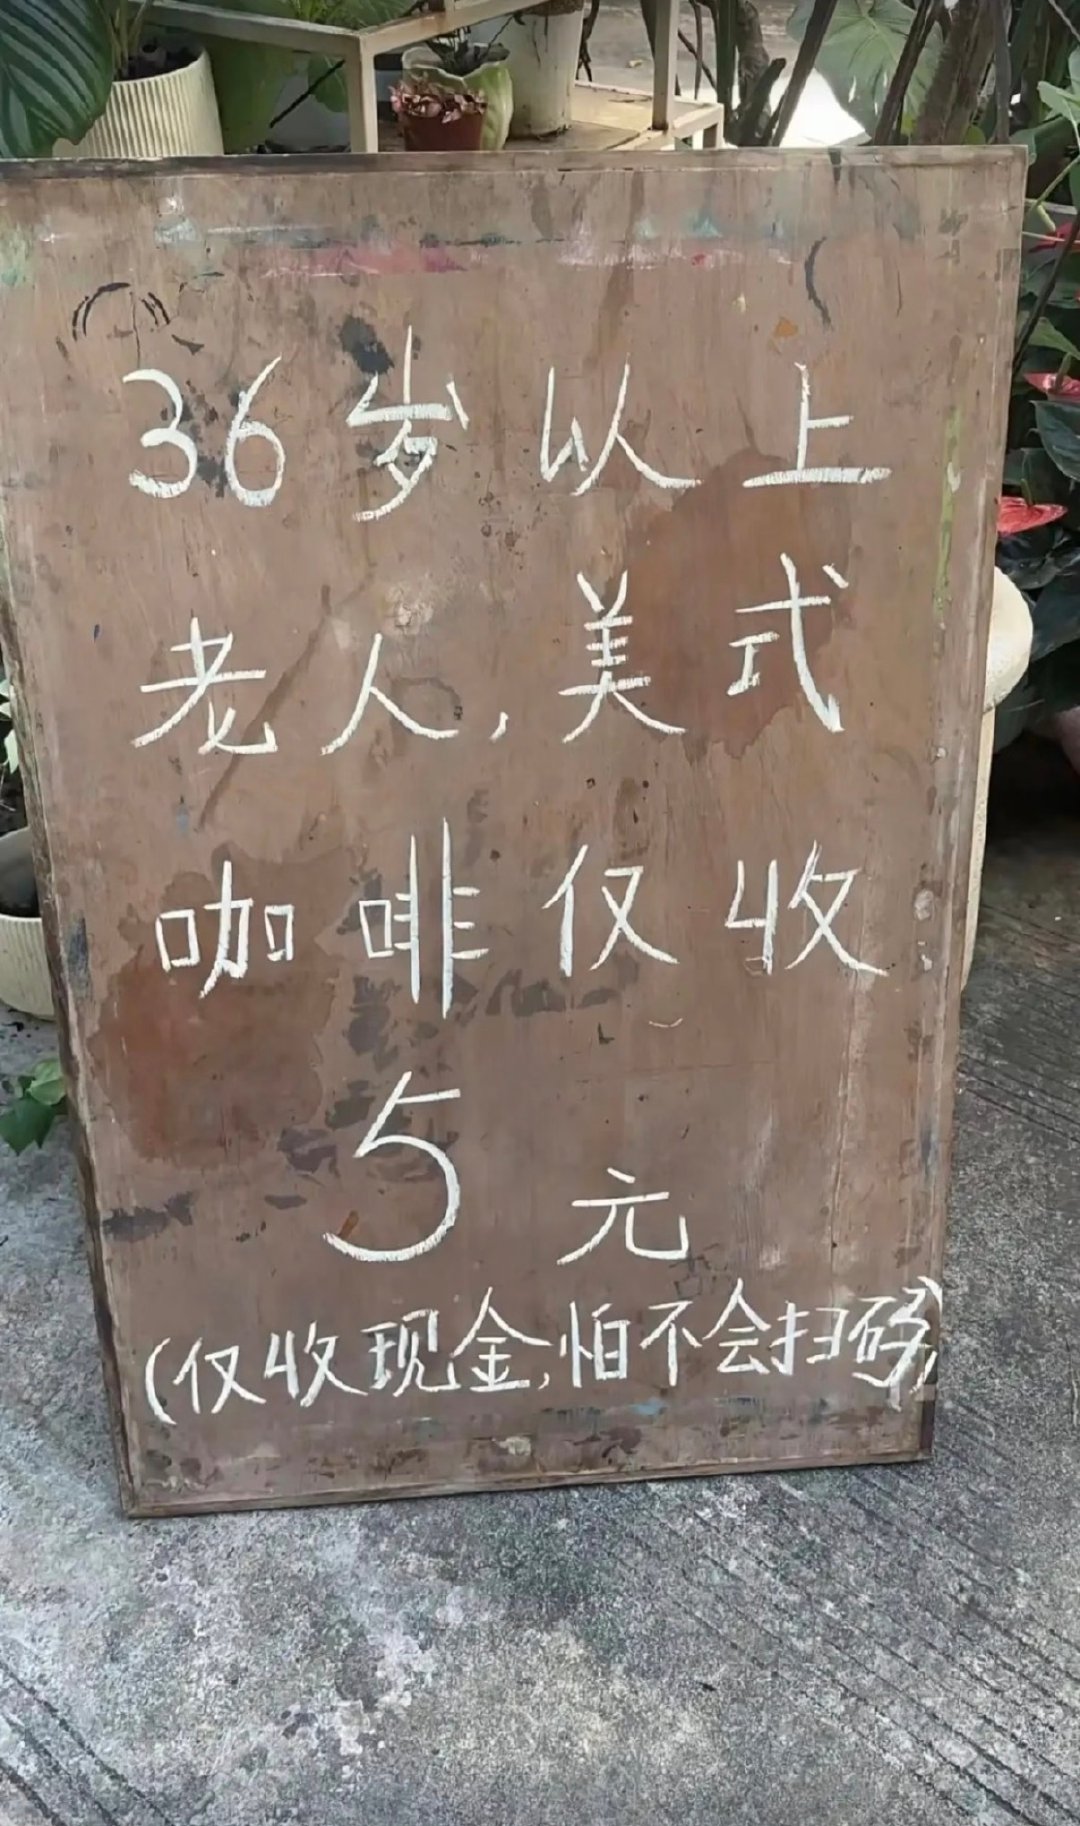 36岁以上
老人,美式
咖啡仅收
5元
(仅收现金,怕不会扫码)